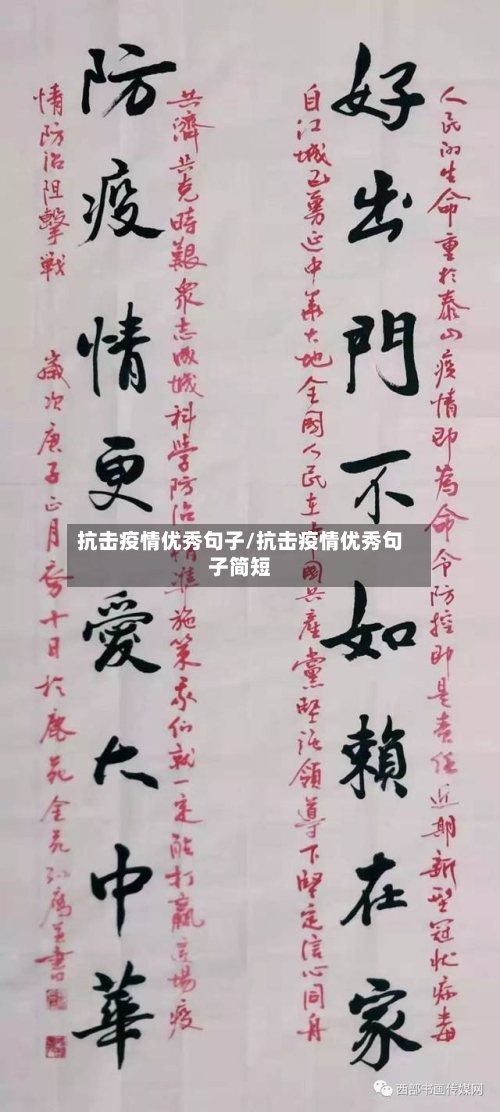 人民的生命重於泰山疫情即為命令防控即是責任近期新型冠狀病毒
好出門不如賴在家
自江城已蔓延中華大地全國人民在中國共產黨堅強領導下堅定信心同舟
共濟共克時艱眾志成城科學防治精準施策我们就一定能打贏這場疫
防疫情更愛大中華
情防治阻擊戰
歲次庚子正月初十日於鹿苑
書
抗击疫情优秀句子/抗击疫情优秀句
子简短
西部书画传媒网